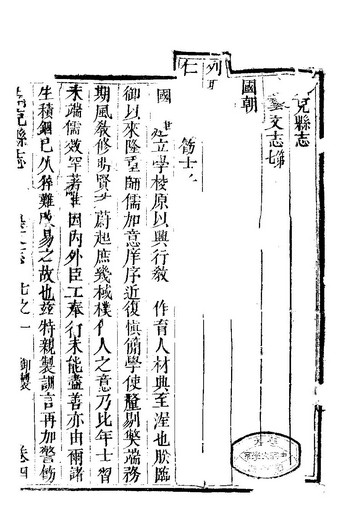 充縣志
藝文志七
國朝
列
仁
飭士
國 建立學校原以興行教 作育人材典至渥也朕臨
御以來隆重師儒加意庠序近復慎簡學使釐剔獘端務
期風教修明賢才蔚起庶幾棫樸作人之意乃比年士習
未端儒效罕著雖因內外臣工奉行未能盡善亦由爾諸
生積錮已久猝難改易之故也茲特親製訓言再加警飭
充縣志 藝文志 七之一 御製 卷四